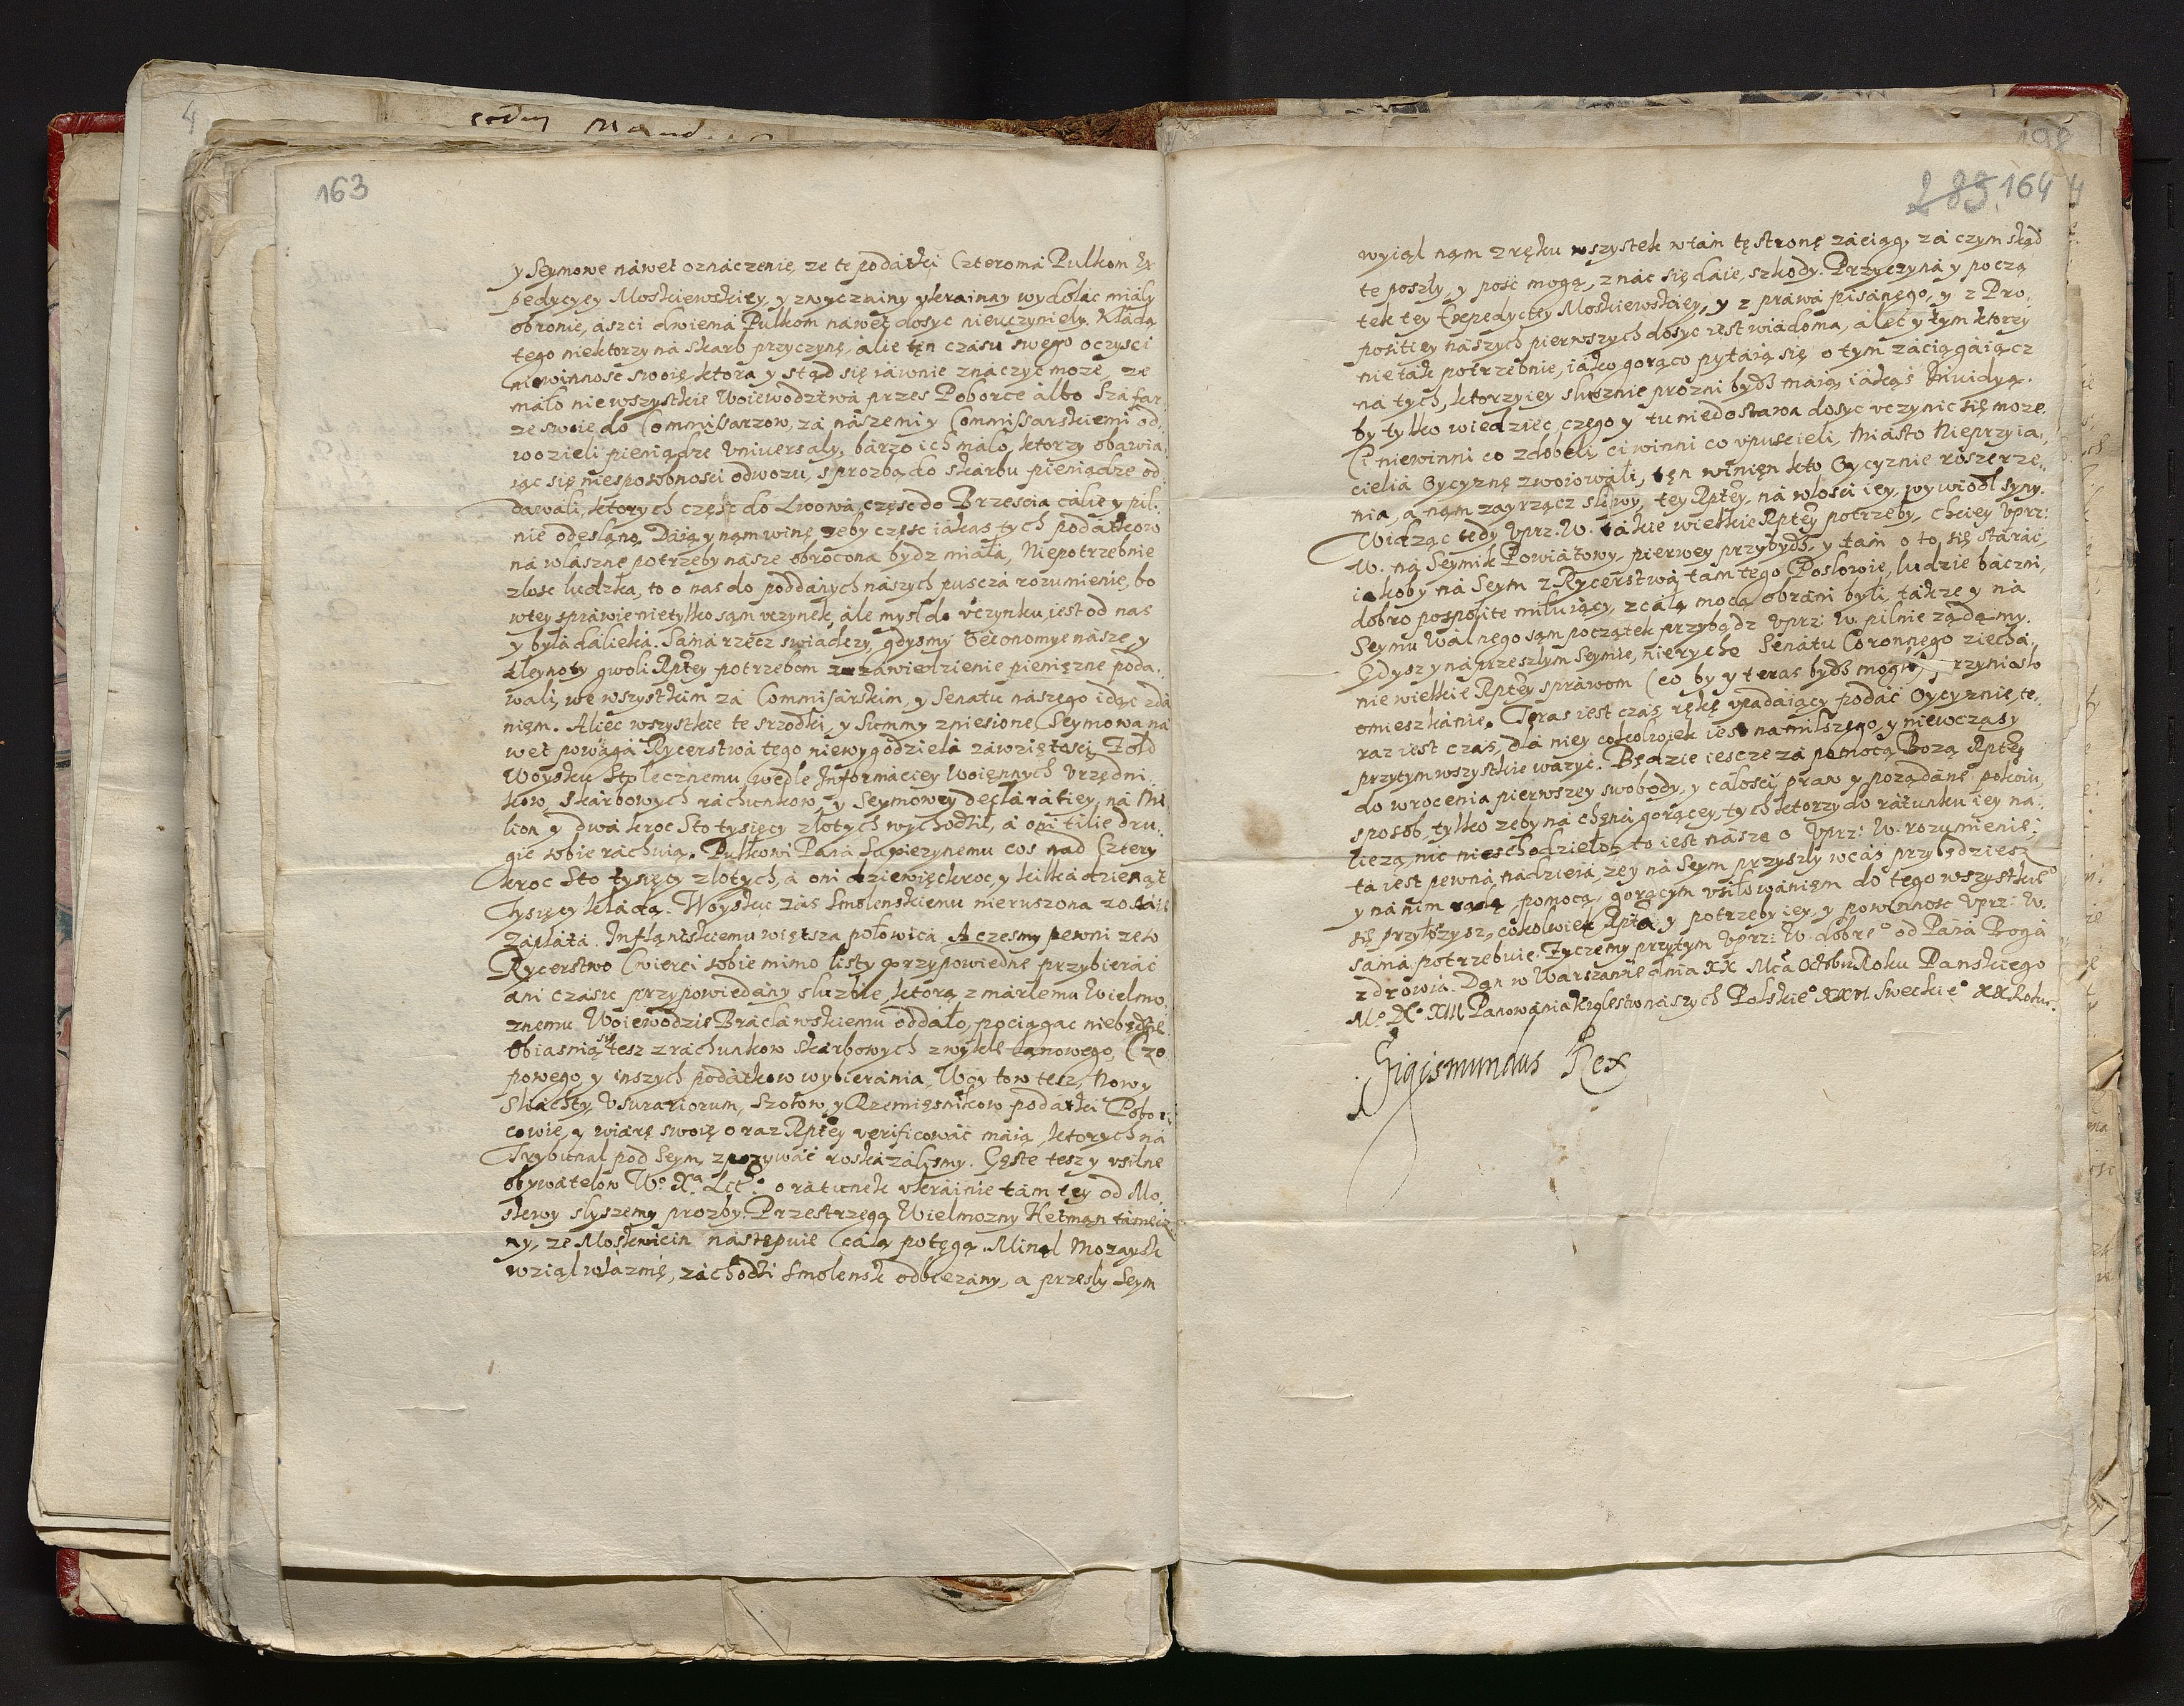 4
163
y Seymowe náwet oznáczenie, ze te podátki Czteromá Pulkom Ex
pedycyey Moskiewskiey, y zwyczáiny ukrainny wydolác miály
obronie, ászci dwiemá Pulkom náwet dosyc nieuczyniely. Kłádą
tego niektorzy ná skarb przyczynę, álie tęn czasu swego oczysci
niewinnosc swoię ktora y stąd się iáwnie znáczyc moze, ze
máło nie wszystkie Woiewodztwá przes Poborce álbo Száfar,
ze swoie do Commissarzow, zá nászemi y Commissarskiemi od,
wozieli pieniądze Vniuersaly, bárzo ich máło, ktorzy obáwiá,
iąc się niesposobnosci odwozu, s prozbą do skárbu pieniądze od
dawáli, ktorych częsc do Lwowá, częsc do Brzescia cálie y pil,
nie odesłąno. Dáią y nąm winę zeby częsc iákas tych podátkow
ná włásne potrzeby násze obrocona bydz miáłá, Niepotrzebnie
złosc ludzka, to o nas do poddánych nászych puscza rozumienie, bo
wtey spráwie nietylko sąm uczynek, ále mysl do uczynku, iest od nas
y byłá dálieka. Sámá rzecz swiádczy, gdysmy Oeconomye násze, y
kleynoty gwoli Rptey potrzebom zázáwiedzienie pieniężne podá,
wali, we wszystkim zá Commisarskim, y Senatu nászego idąc zdá
nięm. Aliec wszystkie te srzodki, y Summy zniesione Seymowa ná
wet powagá Rycerstwá tego niewygodzielá záwziętosci, Zołd
Woysku Stolecznemu wedle Informáciey Woięnnych Vrzędni,
kow, Skarbowych ráchunkow, y Seymowey decláratiey, ná Mi
lion y dwá kroc Sto tysięcy złotych wychodził, á oni tilie dru,
gie sobie ráchuią. Pułkowi Páná Sapiezynemu cos nad Cztery
kroc Sto tysięcy złotych, á oni dziewięckroc, y kilkádziesąt
Tysięcy kládą. Woysku zás Smolenskiemu nieruszona zostáie
zápłátá. Inflantskiemu większa połowicá. A czesmy pewni ze to
Rycerstwo Cwierci sobie mimo listy przypowiedne przybieráć
ani czásu przypowiedány służbie, ktorą zmárłemu Wielmo,
znemu Woiewodzie Bracláwskiemu oddáło, pociągac niebędzie
Obiasnią się tesz z rachunkow skárbowych zwykłe łanowego, Czo
powego, y inszych podátkow wybierania, Woytow tesz, Nowy
Sláchty, Vsurariorum, Szotow, y Rzemięsnikow podátki Pobor,
cowie, y wiárę swoię oraz Rptey verificowáć máią, ktorych ná
Trybunal pod Seym zpozywáć roskázálismy. Gęste tesz y usilne
obywátelow Wo. Xa. Lit.o o rátunek ukráinie tám tey od Mo,
skwy slyszemy prozby. Przestrzega Wielmozny Hetman támecz
ny, ze Moskwicin nástępuie cáłą potęgą. Minąl Mozaysk
wziął wiázmę, záchodzi Smolensk odbiezány, a przesly Seym
198
283 164
wyiąl nąm z ręku wszystek w tám tę stronę záciąg, zá czym skąd
te poszly, y pośc mogą, znác się dáie, szkody. Przyczyná y począ
tek tey Expedyctey Moskiewskiey, y z práwá pisánego, y z Pro,
positiey nászych pierwszych dosyc iest wiádoma, álec y tym ktorzy
nieták potrzebnie, iáko gorąco pytáią się o tym záciągáiącz
na tych, ktorzy iey słusznie prozni bydź máią, iákąś Inuidyą.
by tylko wiedziec, czego y tu niedostawa dosyc uczynic się moze.
Ci niewinni co zdobeli, ci winni co upuscieli, Miásto Nieprzyia,
cielia Oyczyznę zwoiowáli, tęn winięn kto Oyczyznie rosszerze,
nia, a nąm zayrzącz sławy, tey Rptey, ná włości iey, wywiodl syny.
Widząc tedy Vprz: W. tákie wielkie Rptey potrzeby, chciey Vprz:
W. ná Seymik Powiátowy pierwey przybydź, y tám o to, się stáráć,
iakoby ná Seym z Rycerstwá tám tego Posłowie, ludzie báczni,
dobro pospolite miłuiący, z cáłą mocą obráni byli, tákze y ná
Seymu Walnego sąm początek przybądz Vprz: W. pilnie ządamy.
Gdysz y ná przeszłym Seymie, nierychłe Senátu Coronnego ziechá,
nie wielkie Rptey spráwom (co by y teras bydź mogło) przyniosło
omieszkánie. Teras iest czas, rękę upadáiący podáć Oyczyznie, te,
raz iest czas, dlá niey cokolwiek iest namilszego, y niewczásy
przytym wszystkie wáżyć. Będzie iescze zá pomocą Bozą Rptey
do wrocenia pierwszey swobody, y cáłości praw y poządáne pokoiu,
sposob, tylko zęby ná chęnci gorącey, tych ktorzy do rátunku iey na,
liezą, nic nieschodzieło, to iest násze o Vprz: W. rozumienie;
tá iest pewna nádzieiá, zey ná Seym przyszły wcás przybędziesz
y ná nim rádą, pomocą, gorącym usiłowánięm do tego wszystkieo
się przyłozysz, cokolwiek Rpta, y potrzeby iey, y powinność Vprz: W.
sámá potrzebuie. Zyczemy przytym Vprz: W. dobreo od Páná Bogá
zdrowia. Dan w Warszáwie dnia XX Mca Octobra Roku Panskiego
Mo. DCo. XIII Panowánia krolestw nászych Polskieo XXVI Sweckieo XX Roku.
Sigismundus Rex